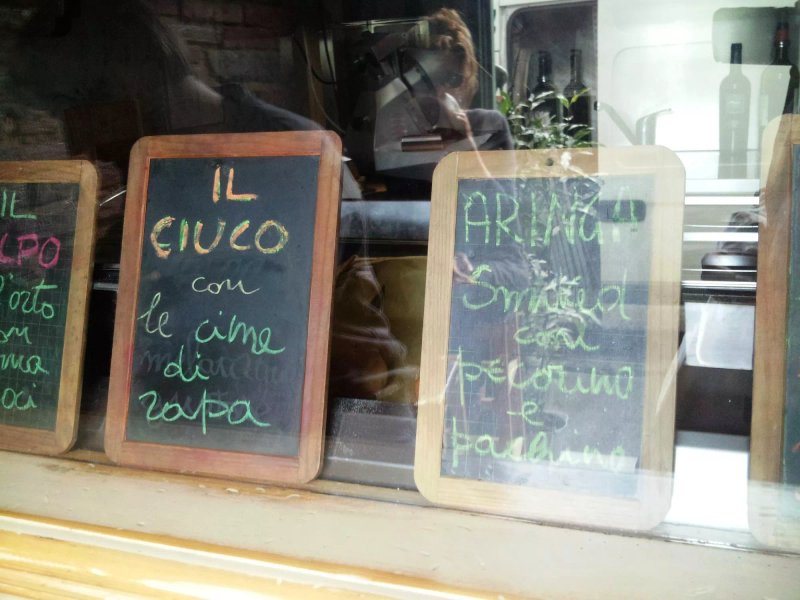 IL
LPO
l'orto
on
ma
oci
IL
CIUCO
con
le cime
di
rapa
ARINGA
Smoked
con
pecorino
e
pachino